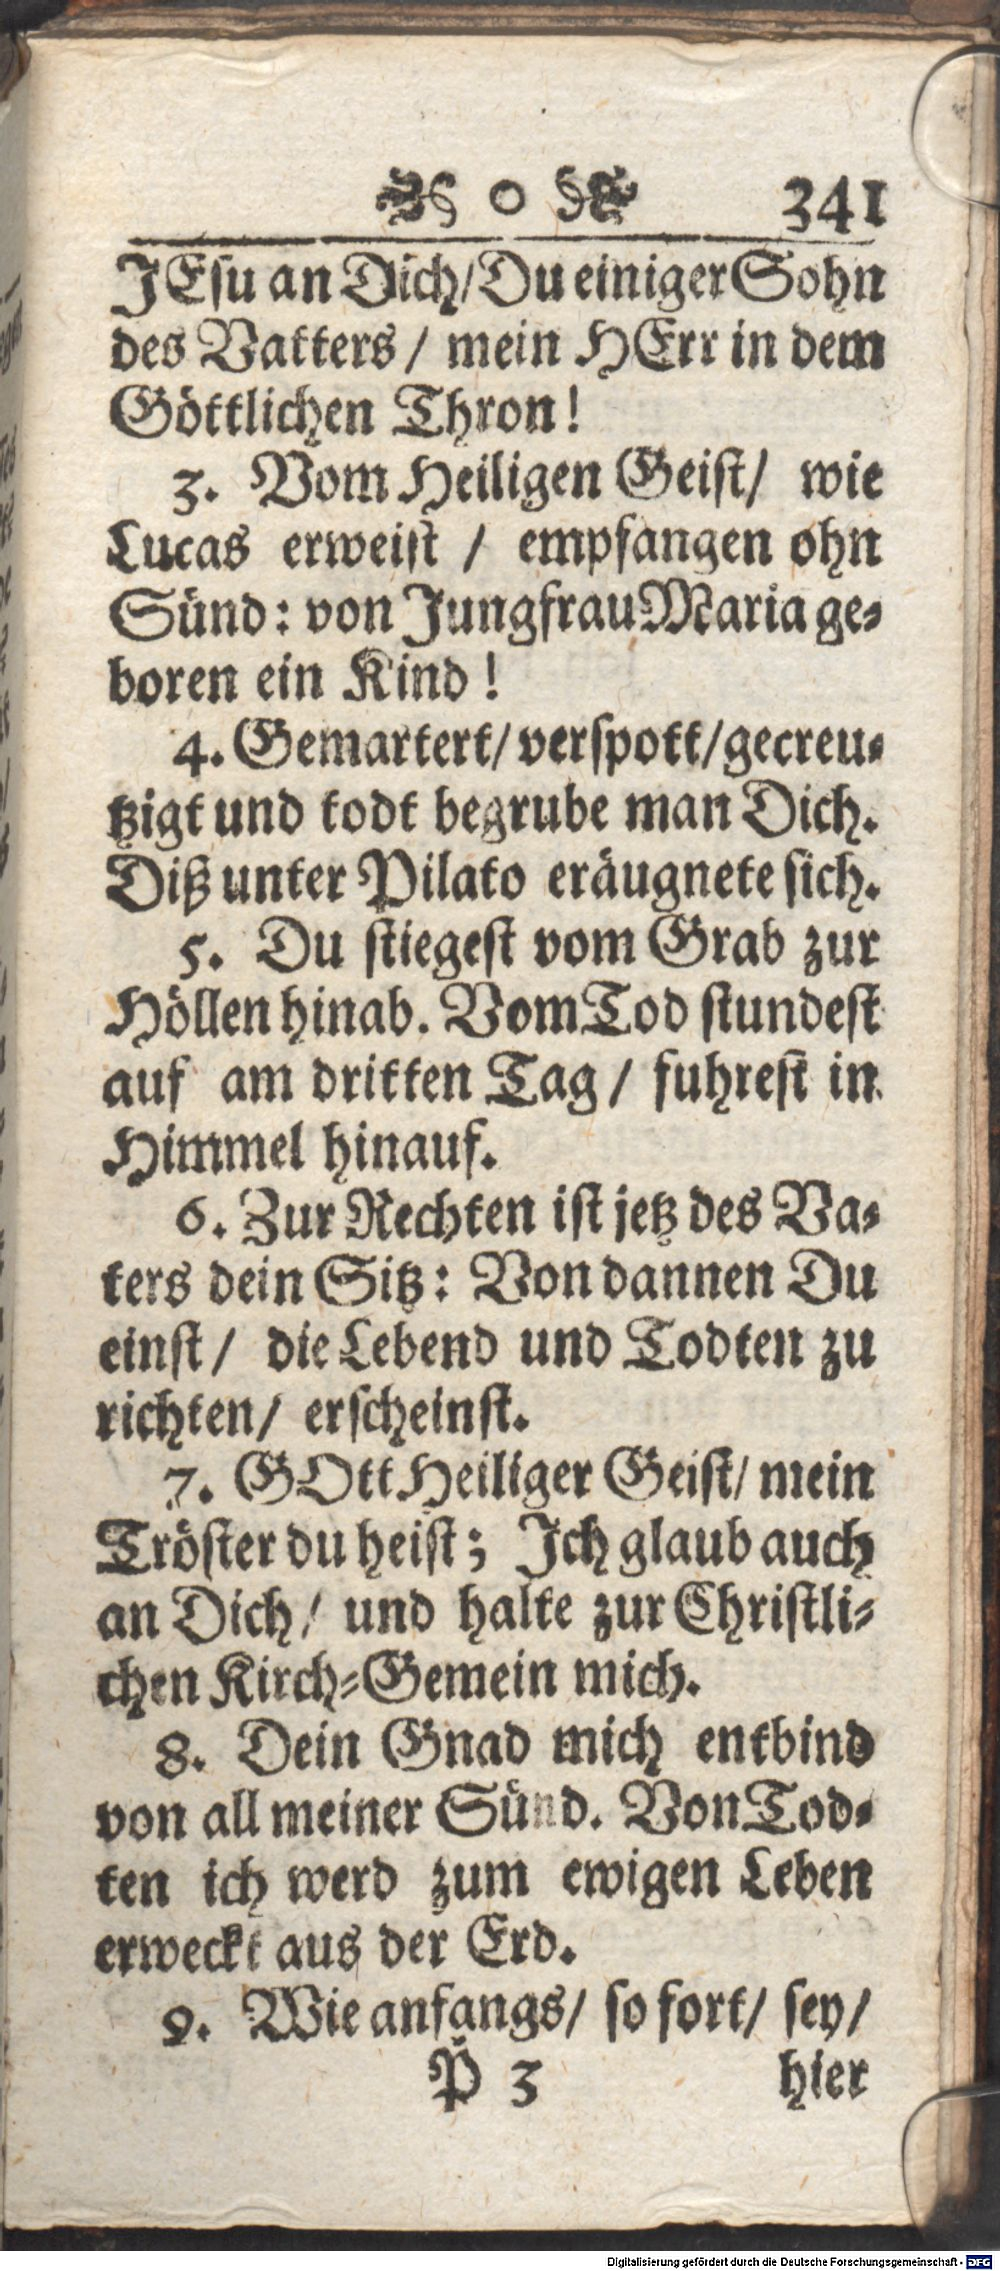 o 341
JEsu an Dich/ Du einiger Sohn
des Vatters / mein HErr in dem
Göttlichen Thron!
3. Vom Heiligen Geist/ wie
Lucas erweist / empfangen ohn
Sünd: von Jungfrau Maria ge-
boren ein Kind!
4. Gemartert/ verspott/ gecreu-
tzigt und todt begrube man Dich.
Diß unter Pilato eräugnete sich.
5. Du stiegest vom Grab zur
Höllen hinab. Vom Tod stundest
auf am dritten Tag / fuhrest in
Himmel hinauf.
6. Zur Rechten ist jetz des Va-
ters dein Sitz: Von dannen Du
einst/ die Lebend und Todten zu
richten/ erscheinst.
7. GOtt Heiliger Geist/ mein
Tröster du heist; Ich glaub auch
an Dich/ und halte zur Christli-
chen Kirch-Gemein mich.
8. Dein Gnad mich entbind
von all meiner Sünd. Von Tod-
ten ich werd zum ewigen Leben
erweckt aus der Erd.
9. Wie anfangs/ so fort/ sey/
P 3 hier
Digitalisierung gefördert durch die Deutsche Forschungsgemeinschaft - DFG